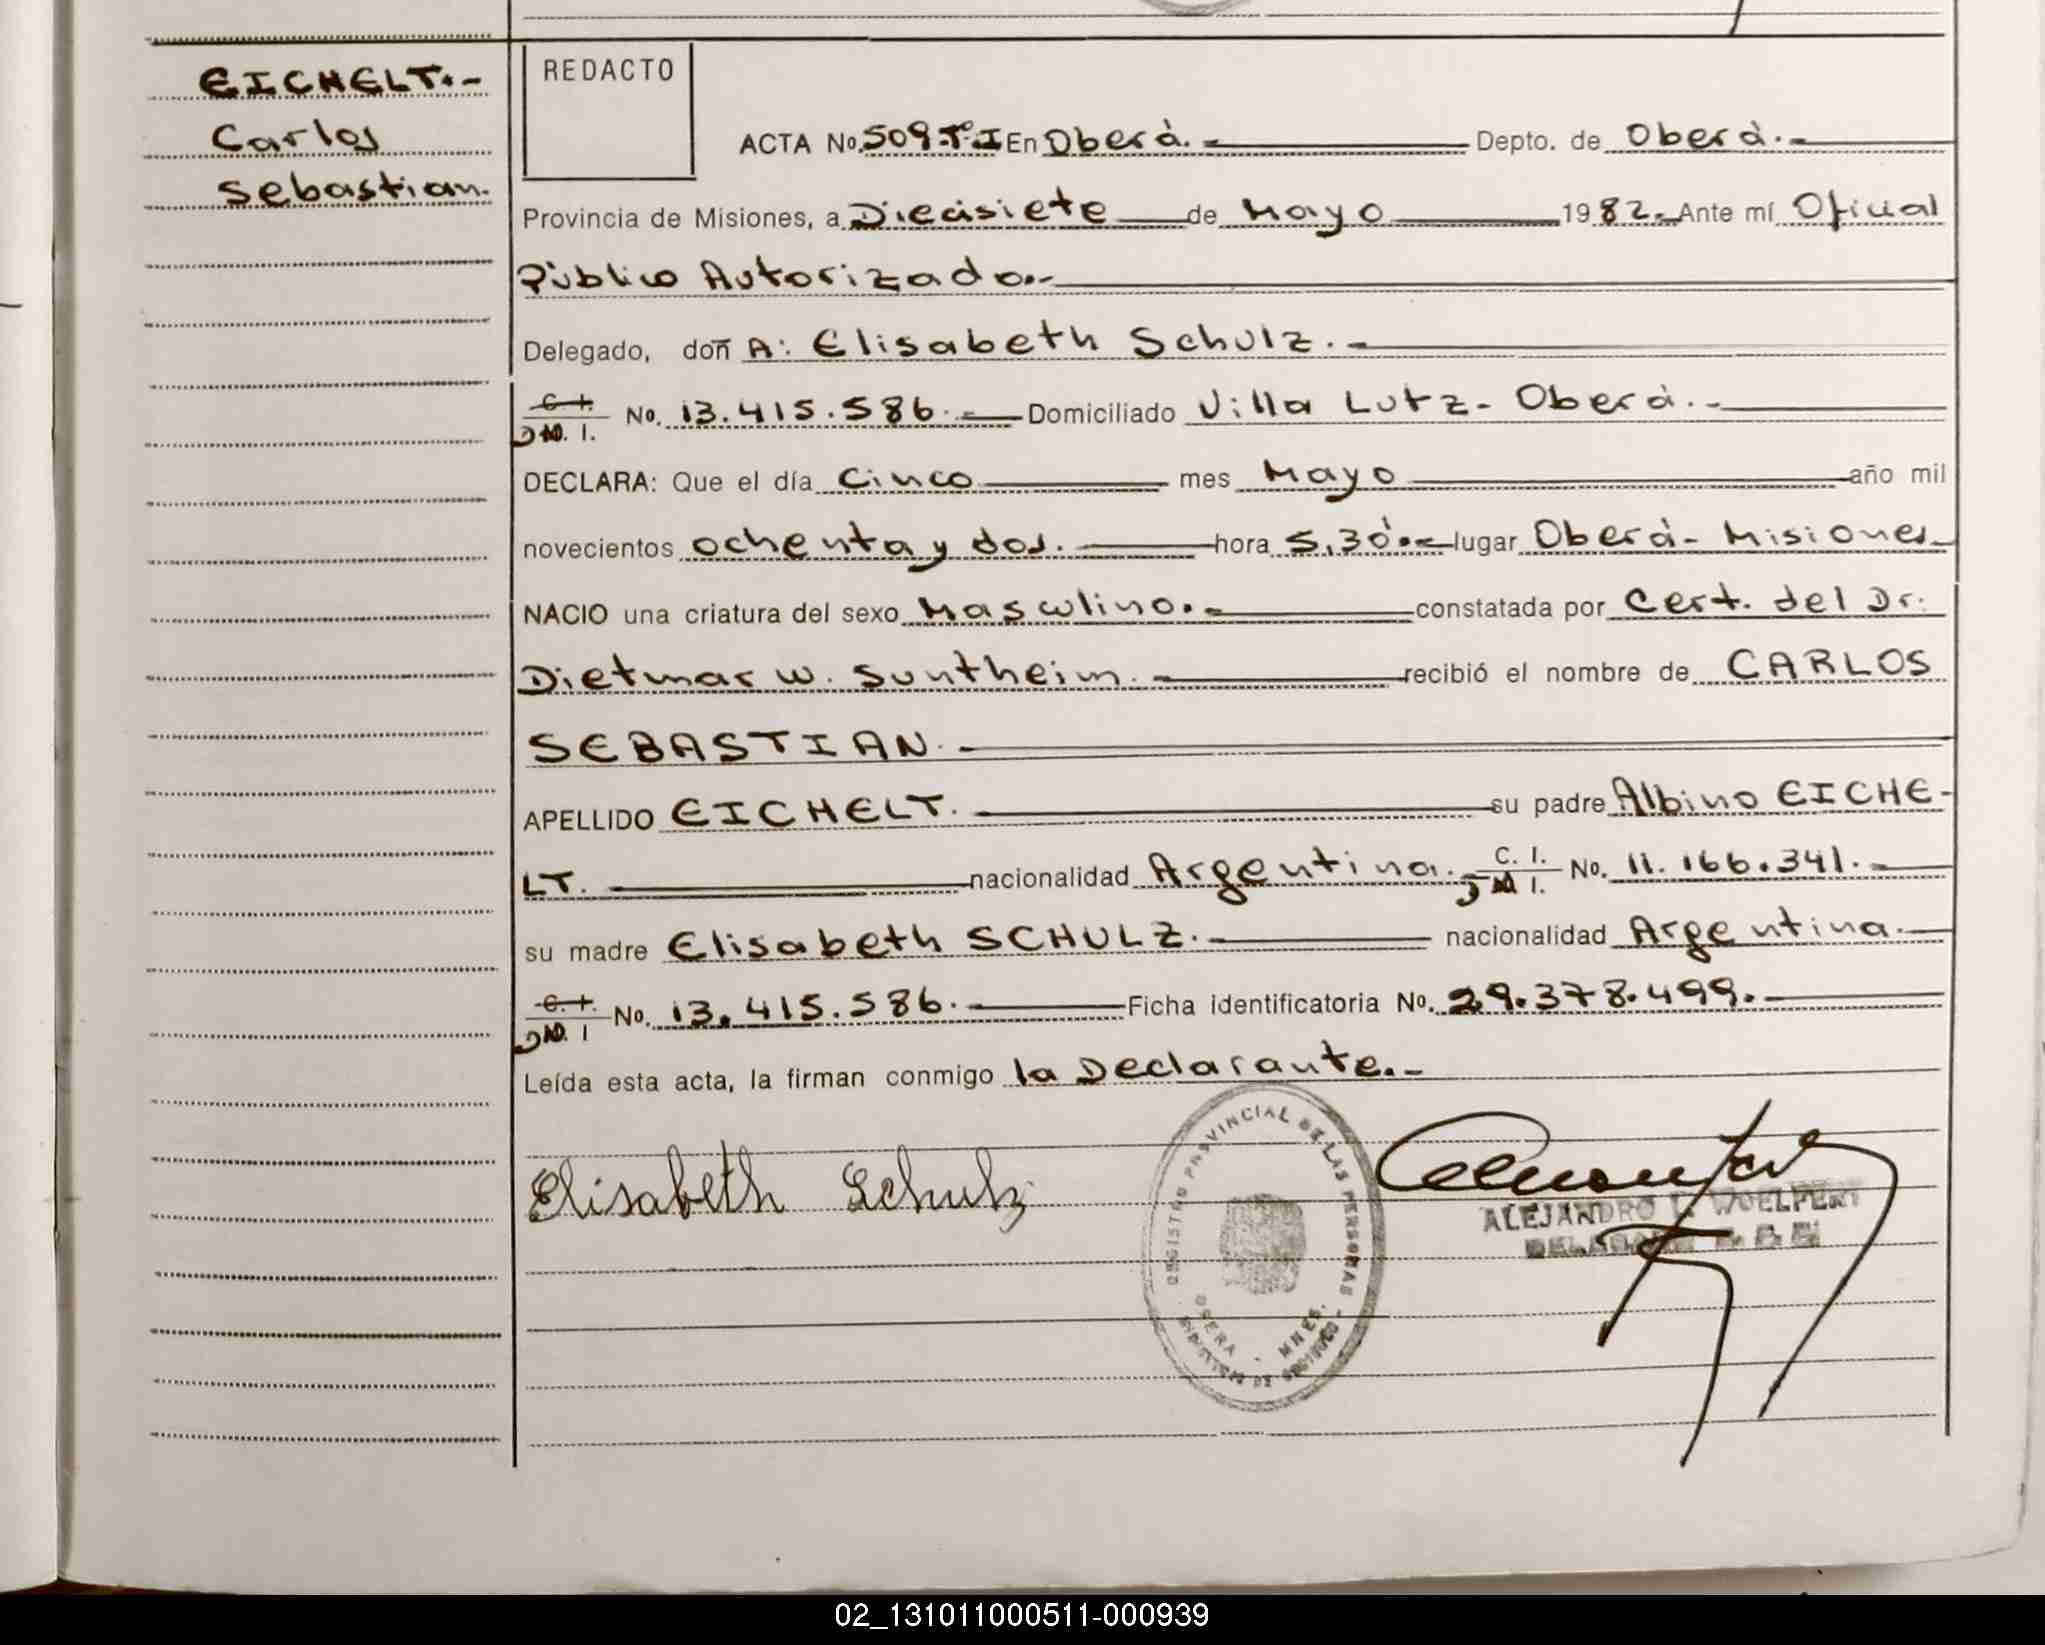 EICHELT.-
Carlos
Sebastian.
REDACTO
ACTA No. 509.Tº.I En Oberà. Depto. de Oberà.-
Provincia de Misiones, a Diecisiete de Mayo 1982.- Ante mí Oficial
Pùblico Autorizado.-
Delegado, doñ A: Elisabeth Schulz.-
C. I.
D N. I. No. 13.415.586.- Domiciliado Villa Lutz- Oberà.-
DECLARA: Que el día Cinco mes Mayo año mil
novecientos ochenta y dos. hora 5,30.- lugar Oberà- Misiones
NACIO una criatura del sexo Masculino.- constatada por Cert. del Dr.
Dietmar W. Suntheim.- recibió el nombre de CARLOS
SEBASTIAN.-
APELLIDO EICHELT. su padre Albino EICHE-
LT. nacionalidad Argentina.- C. I.
D N I. No. 11.166.341.-
su madre Elisabeth SCHULZ.- nacionalidad Argentina.-
C. I.
D N. I No. 13.415.586.- Ficha identificatoria No. 29.378.499.-
Leída esta acta, la firman conmigo la Declarante.-
Elisabeth Schulz
REGISTRO PROVINCIAL DE LAS PERSONAS
OBERA - MNES.
ALEJANDRO WOELFERT
02_131011000511-000939